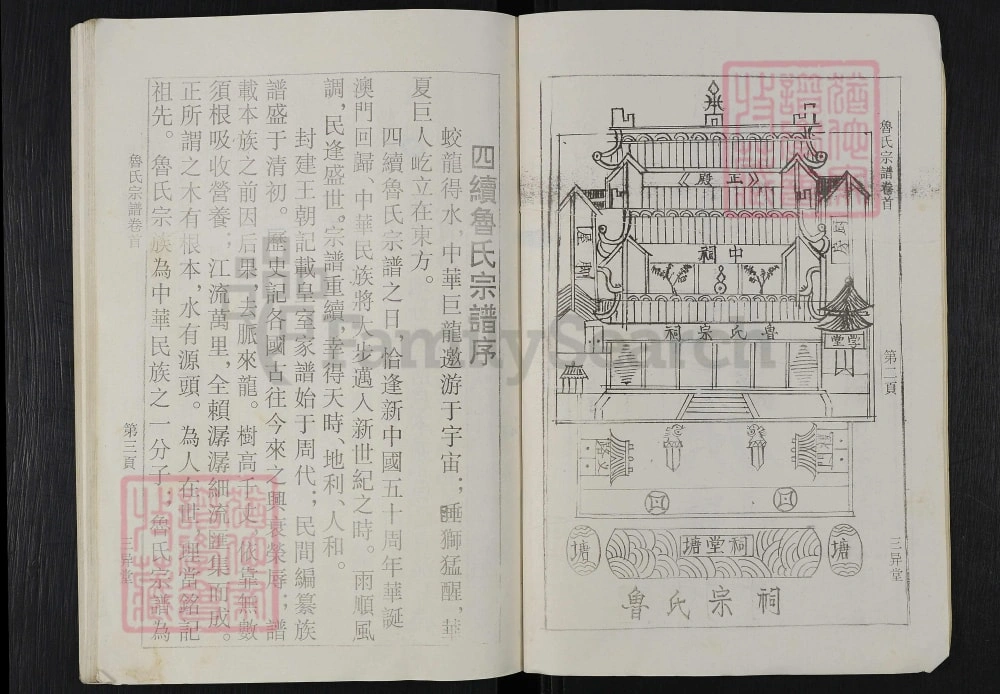 魯氏宗譜卷首
第二頁
三异堂
《殿正》
祠中
祠宗氏魯
學堂
塘
塘堂祠
塘
魯氏宗祠
四續魯氏宗譜序
蛟龍得水，中華巨龍遨游于宇宙；睡獅猛醒，華
夏巨人屹立在東方。
四續魯氏宗譜之日，恰逢新中國五十周年華誕
澳門回歸、中華民族將大步邁入新世紀之時。雨順風
調，民逢盛世。宗譜重續，幸得天時、地利、人和。
封建王朝記載皇室家譜始于周代；民間編纂族
譜盛于清初。歷史記各國古往今來之興衰榮辱；譜
載本族之前因后果，去脈來龍。樹高千丈，依靠無數
須根吸收營養；江流萬里，全賴潺潺細流匯集而成。
正所謂之木有根本，水有源頭。為人在世，理當銘記
祖先。魯氏宗族為中華民族之一分子；魯氏宗譜為
魯氏宗譜卷首
第三頁
三异堂
FamilySearch